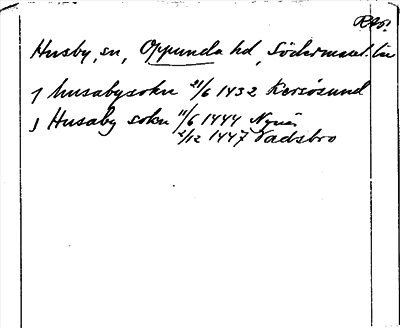 RAp.
Husby, sn, Oppunda hd, Södermanl. län
J husabysokn 21/6 1432 Kersösund
J Husaby sokn 11/6 1444 Nynäs
2/12 1447 Vadsbro